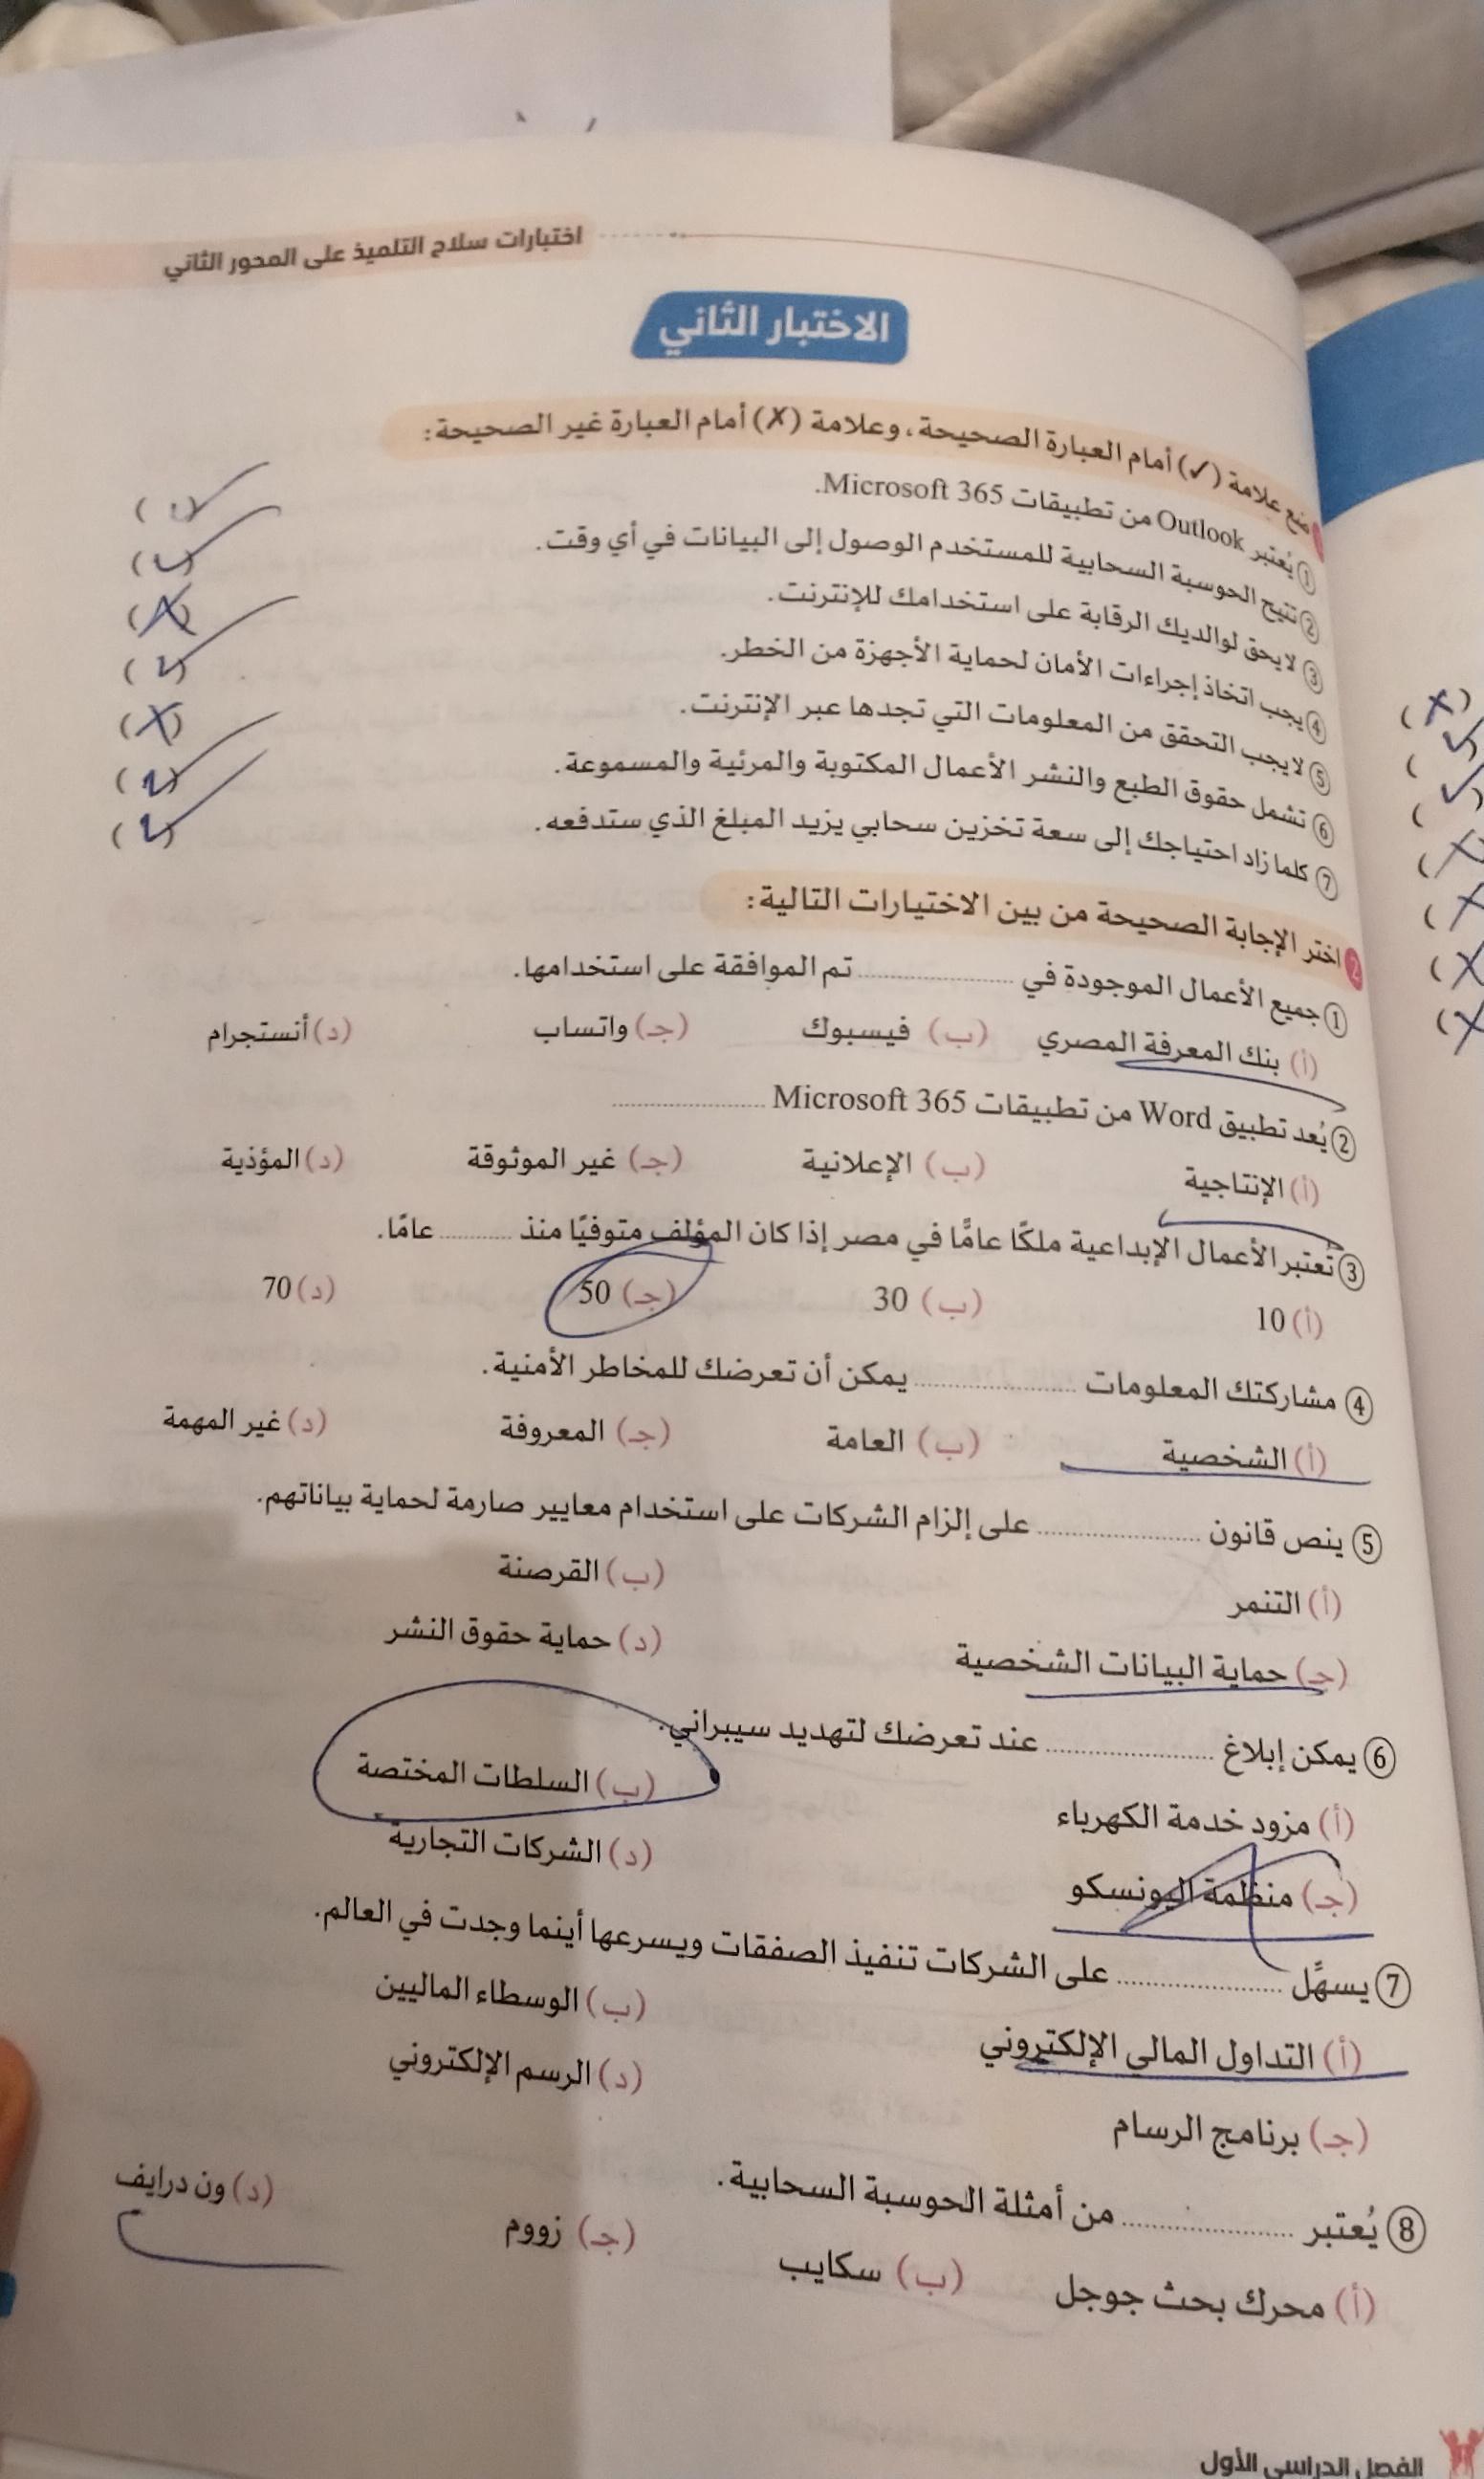 اختبارات سلاح التلميذ على المحور الثاني
الاختبار الثاني
ضع علامة (✓) أمام العبارة الصحيحة، وعلامة (✗) أمام العبارة غير الصحيحة:
① يُعتبر Outlook من تطبيقات Microsoft 365. (✓)
② تتيح الحوسبة السحابية للمستخدم الوصول إلى البيانات في أي وقت. (✓)
③ لا يحق لوالديك الرقابة على استخدامك للإنترنت. (✗)
④ يجب اتخاذ إجراءات الأمان لحماية الأجهزة من الخطر. (✓)
⑤ لا يجب التحقق من المعلومات التي تجدها عبر الإنترنت. (✗)
⑥ تشمل حقوق الطبع والنشر الأعمال المكتوبة والمرئية والمسموعة. (✓)
⑦ كلما زاد احتياجك إلى سعة تخزين سحابي يزيد المبلغ الذي ستدفعه. (✓)
2 اختر الإجابة الصحيحة من بين الاختيارات التالية:
① جميع الأعمال الموجودة في .................... تم الموافقة على استخدامها.
(أ) بنك المعرفة المصري (ب) فيسبوك (جـ) واتساب (د) أنستجرام
② يُعد تطبيق Word من تطبيقات Microsoft 365 ....................
(أ) الإنتاجية (ب) الإعلانية (جـ) غير الموثوقة (د) المؤذية
③ تُعتبر الأعمال الإبداعية ملكًا عامًّا في مصر إذا كان المؤلف متوفيًا منذ .......... عامًا.
(أ) 10 (ب) 30 (جـ) 50 (د) 70
④ مشاركتك المعلومات .................... يمكن أن تعرضك للمخاطر الأمنية.
(أ) الشخصية (ب) العامة (جـ) المعروفة (د) غير المهمة
⑤ ينص قانون .................... على إلزام الشركات على استخدام معايير صارمة لحماية بياناتهم.
(أ) التنمر (ب) القرصنة
(جـ) حماية البيانات الشخصية (د) حماية حقوق النشر
⑥ يمكن إبلاغ .................... عند تعرضك لتهديد سيبراني.
(أ) مزود خدمة الكهرباء (ب) السلطات المختصة
(جـ) منظمة اليونسكو (د) الشركات التجارية
⑦ يسهِّل .................... على الشركات تنفيذ الصفقات ويسرعها أينما وجدت في العالم.
(أ) التداول المالي الإلكتروني (ب) الوسطاء الماليين
(جـ) برنامج الرسام (د) الرسم الإلكتروني
⑧ يُعتبر .................... من أمثلة الحوسبة السحابية.
(أ) محرك بحث جوجل (ب) سكايب (جـ) زووم (د) ون درايف
الفصل الدراسي الأول